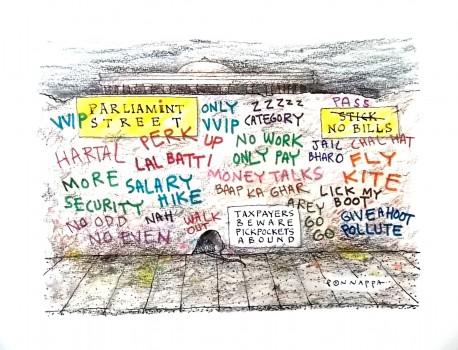 PARLIAMINT
STREET
VVIP
ONLY
VVIP
ZZZZZ
CATEGORY
PASS
STICK
NO BILLS
HARTAL
PERK UP
LAL BATTI
NO WORK
ONLY PAY
JAIL
BHARO
CHAL HAT
FLY
KITE
MORE
SECURITY
SALARY
HIKE
MONEY TALKS
BAAP KA GHAR
LICK MY
BOOT
NO ODD
NO EVEN
NAH
WALK
OUT
TAXPAYERS
BEWARE
PICKPOCKETS
ABOUND
AREY
GO
GO
GIVE A HOOT
POLLUTE
PONNAPPA